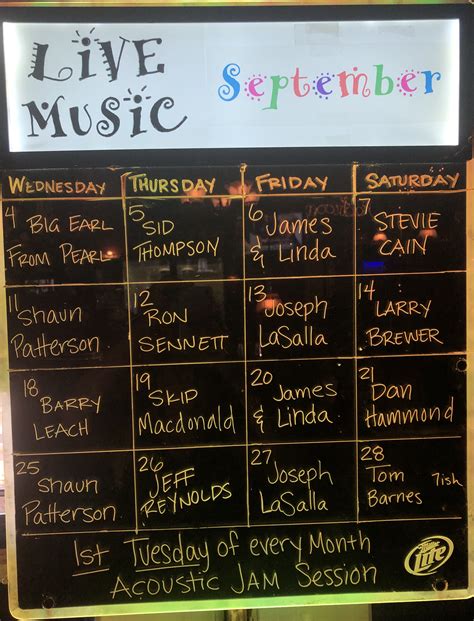 LiVE
MUSiC
September
WEDNESDAY THURSDAY FRIDAY SATURDAY
4
BIG EARL
FROM PEARL
5
SID
THOMPSON
6
James
& Linda
7
STEVIE
CAIN
11
Shaun
Patterson
12
RON
SENNETT
13
Joseph
LaSalla
14
LARRY
BREWER
18
BARRY
LEACH
19
SKID
Macdonald
20
James
& Linda
21
Dan
Hammond
25
Shaun
Patterson
26
JEFF
REYNOLDS
27
Joseph
LaSalla
28
Tom
Barnes 7ish
1st Tuesday of every Month
ACOUSTIC JAM SESSION
Lite